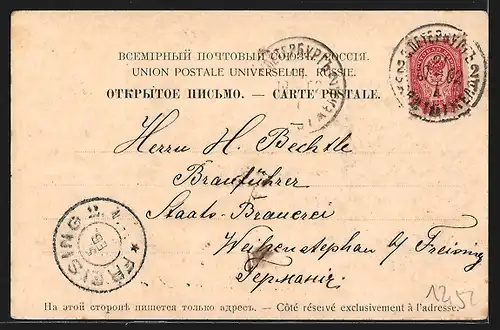 ВСЕМІРНЫЙ ПОЧТОВЫЙ СОЮЗЪ. РОССІЯ.
UNION POSTALE UNIVERSELLE. RUSSIE.
ОТКРЫТОЕ ПИСЬМО. — CARTE POSTALE.
Herrn H. Bechtle
Brauführer
Staats-Brauerei
Weihenstephan b/ Freising
Германія
FREISING
На этой сторонѣ пишется только адресъ. — Côté réservé exclusivement à l'adresse.